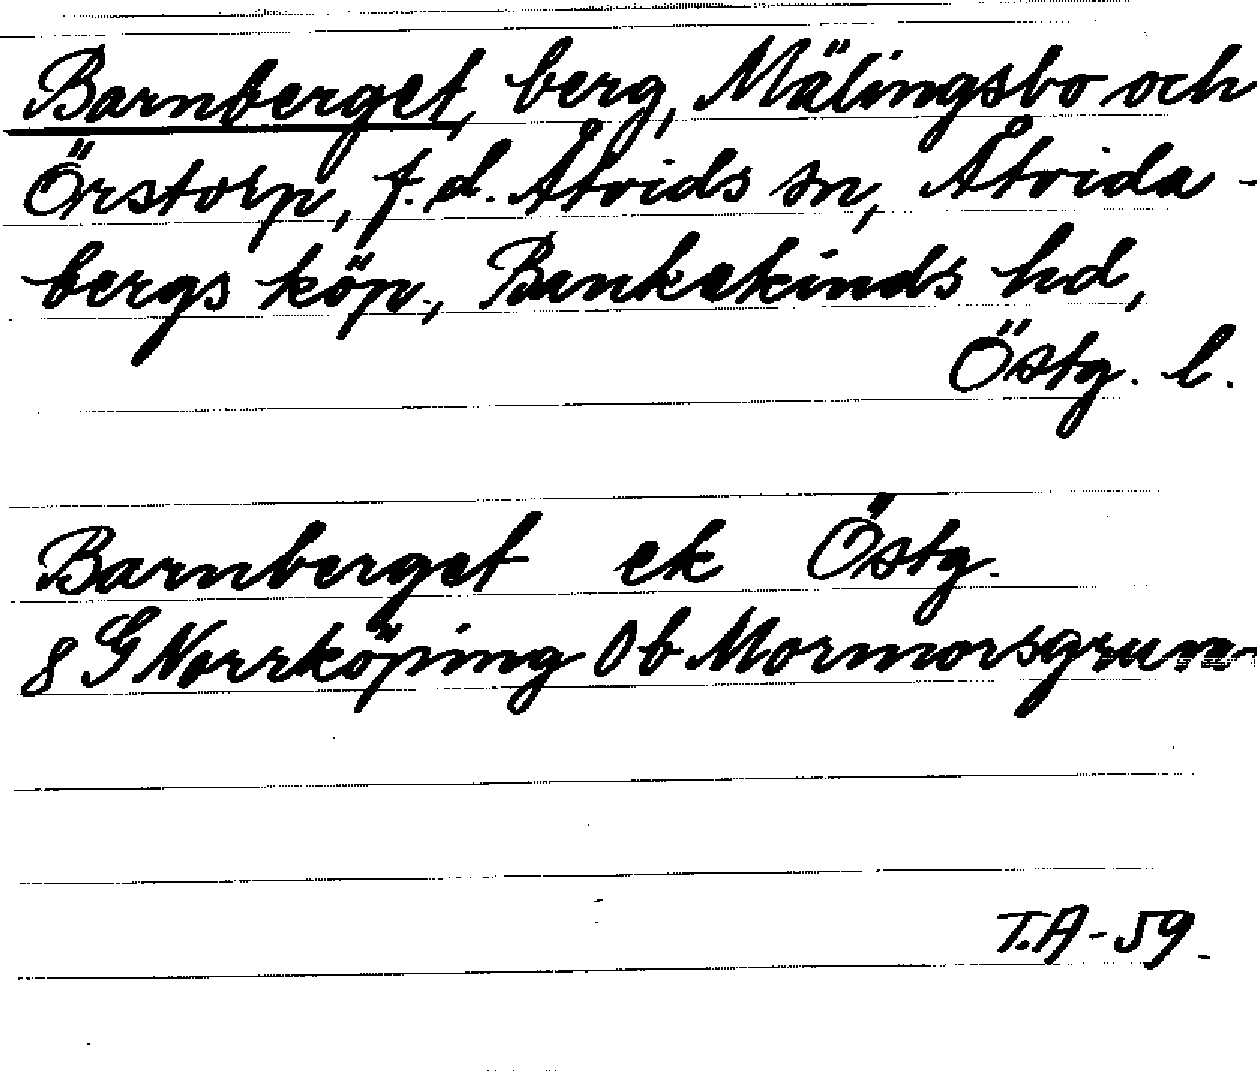 Barnberget, berg, Mälingsbo och
Örstorp, f.d. Åtvids sn, Åtvida-
bergs köp., Bankekinds hd,
Östg. l.
Barnberget ek Östg.
8 G Norrköping 0 b Mormorsgruv-
T.A-59.